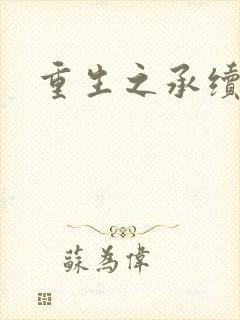 重生之承續
蘇為偉